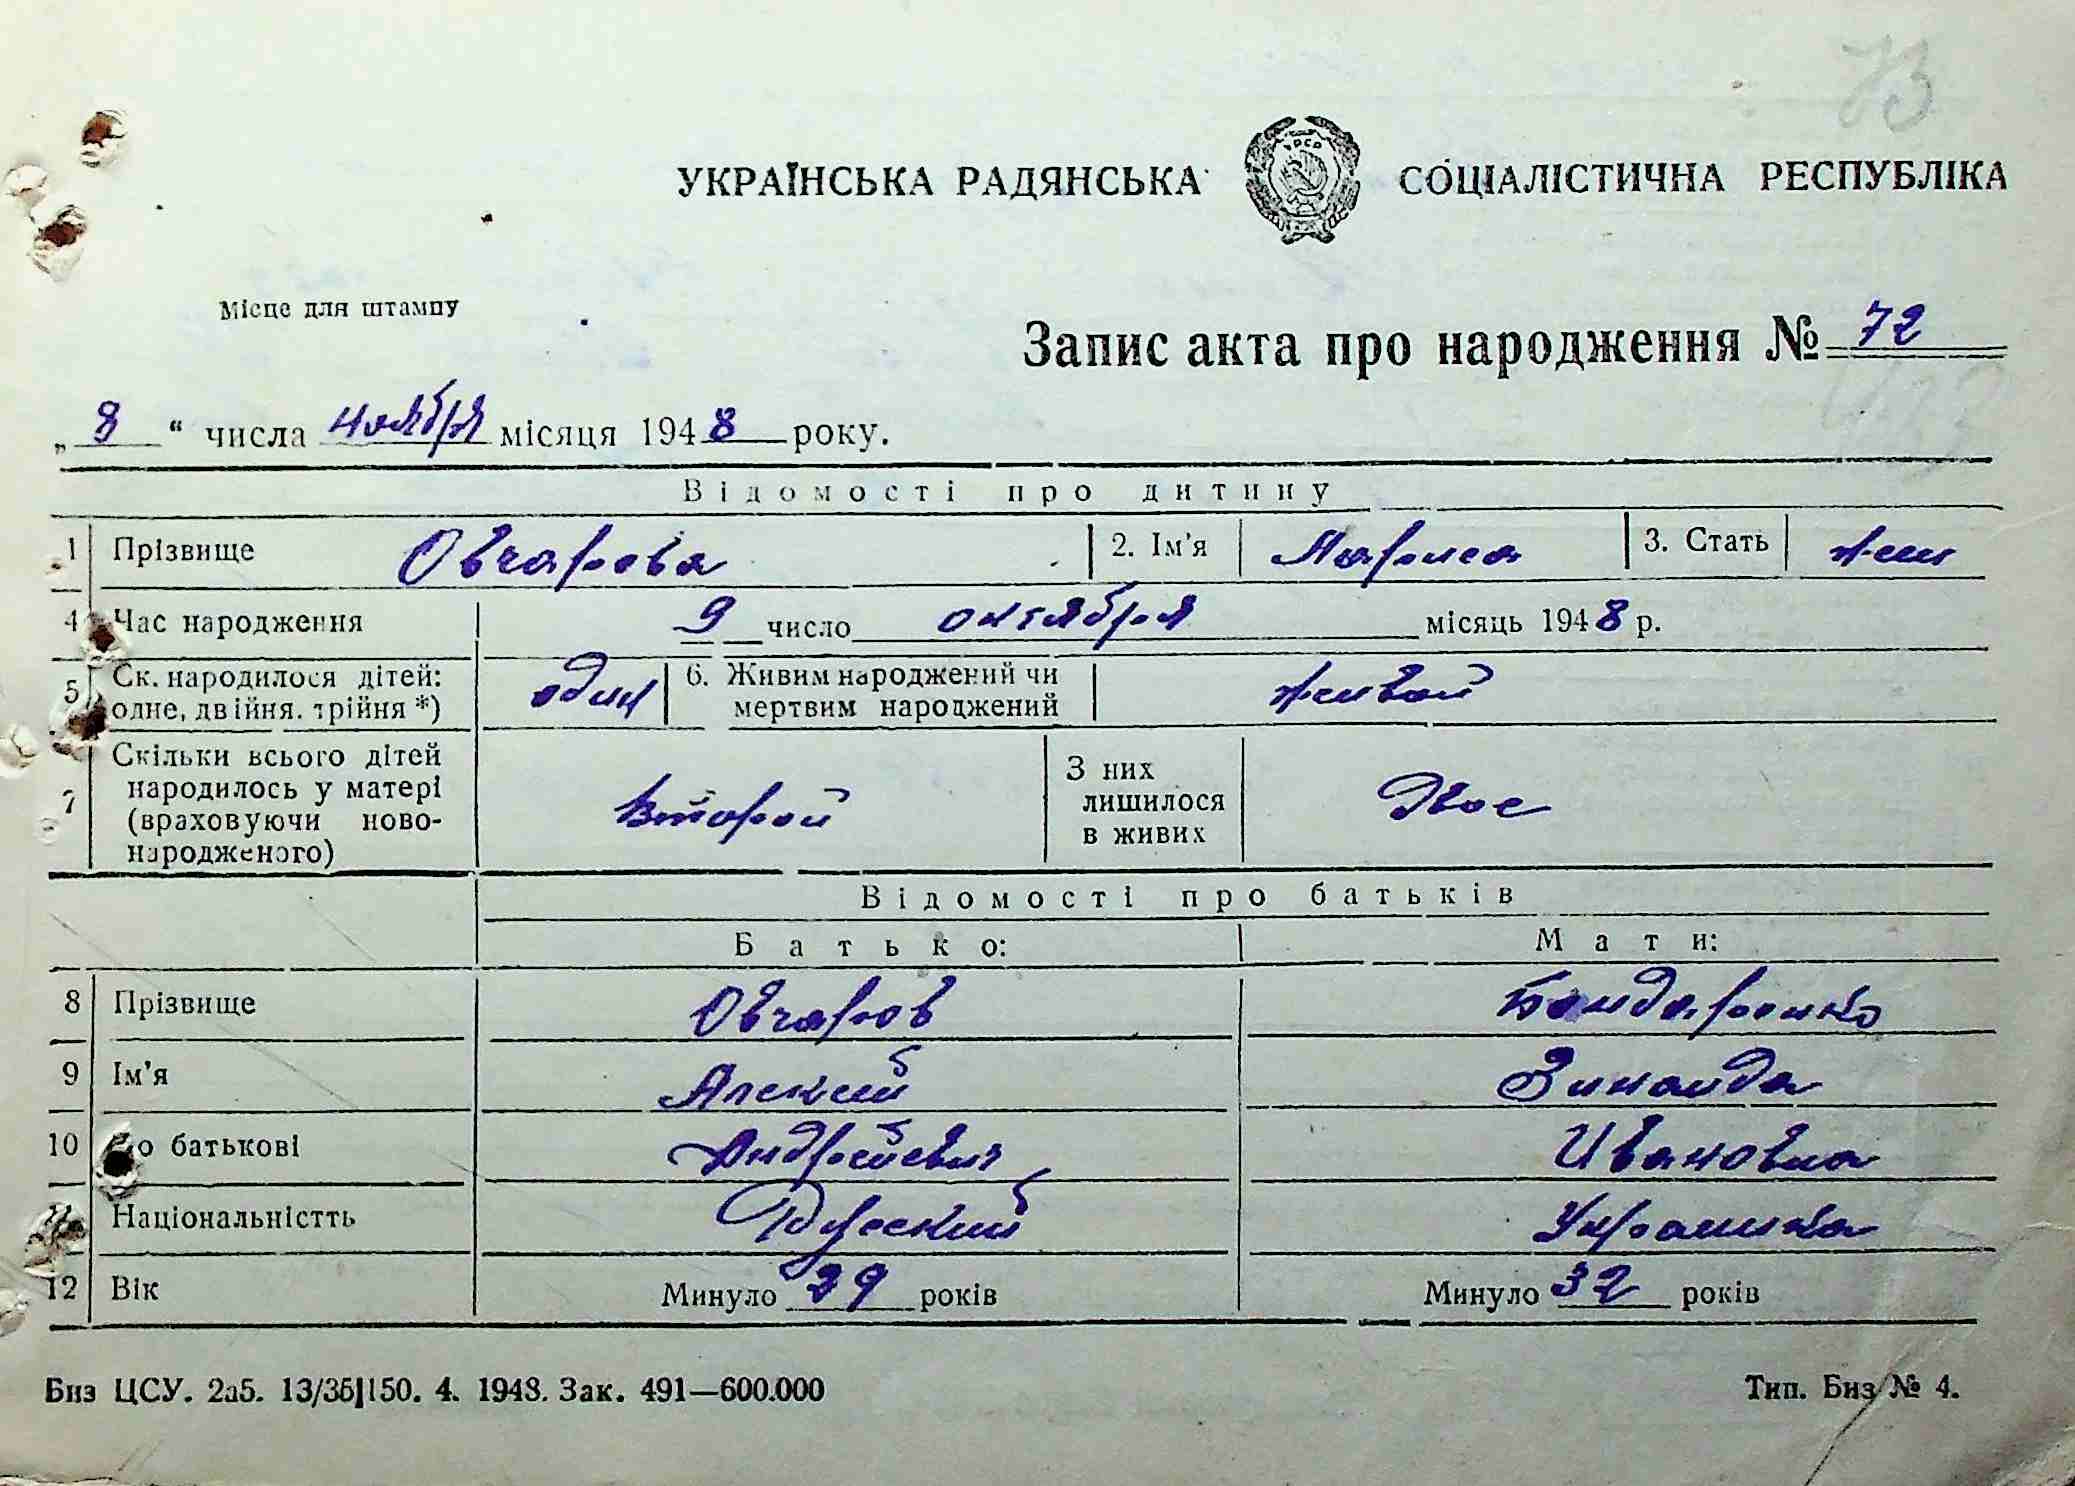 73
УКРАЇНСЬКА РАДЯНСЬКА СОЦІАЛІСТИЧНА РЕСПУБЛІКА
УРСР
Місце для штампу
Запис акта про народження № 72
„ 8 “ числа ноября місяця 1948 року.
Відомості про дитину
1 Прізвище Овчарова 2. Ім'я Лариса 3. Стать жен
4 Час народження 9 число октября місяць 1948 р.
5 Ск. народилося дітей: один 6. Живим народжений чи живой
одне, двійня, трійня *) мертвим народжений
7 Скільки всього дітей народилось у матері (враховуючи новонародженого) второй З них лишилося в живих двое
Відомості про батьків
Батько: Мати:
8 Прізвище Овчаров Бондаренко
9 Ім'я Алексей Зинаида
10 По батькові Андреевич Ивановна
11 Національністть Русский Украинка
12 Вік Минуло 39 років Минуло 32 років
Биз ЦСУ. 2а5. 13/3б|150. 4. 1948. Зак. 491—600.000 Тип. Биз № 4.